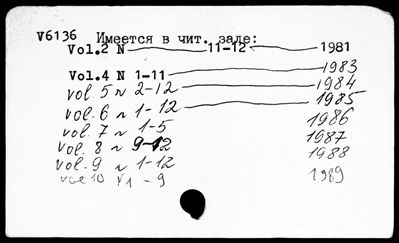 V6136 Имеется в чит. зале:
Vol.2 N 11-12 1981
Vol.4 N 1-11 1983
vol. 5 N 2-12 1984
vol. 6 N 1-12 1985
vol. 7 N 1-5 1986
vol. 8 N 9-12 1987
vol. 9 N 1-12 1988
vol 10 N 1-9 1989